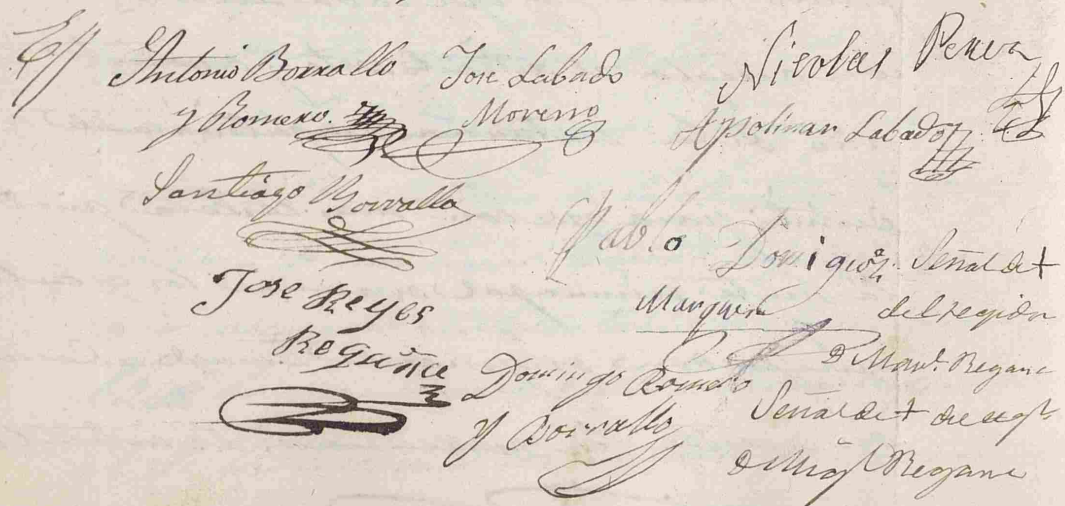 Antonio Borrallo
y Romero.
Jose Labado
Moreno
Nicolas Perera
Apolinar Labado
Santiago Borrallo
Pablo Domigez
Marquez
Señal de +
del regidor
D Man.l Regana
Jose Reyes
Reguñce
Domingo Romero
y Borrallo
Señal de + de
D Mig.l Regana